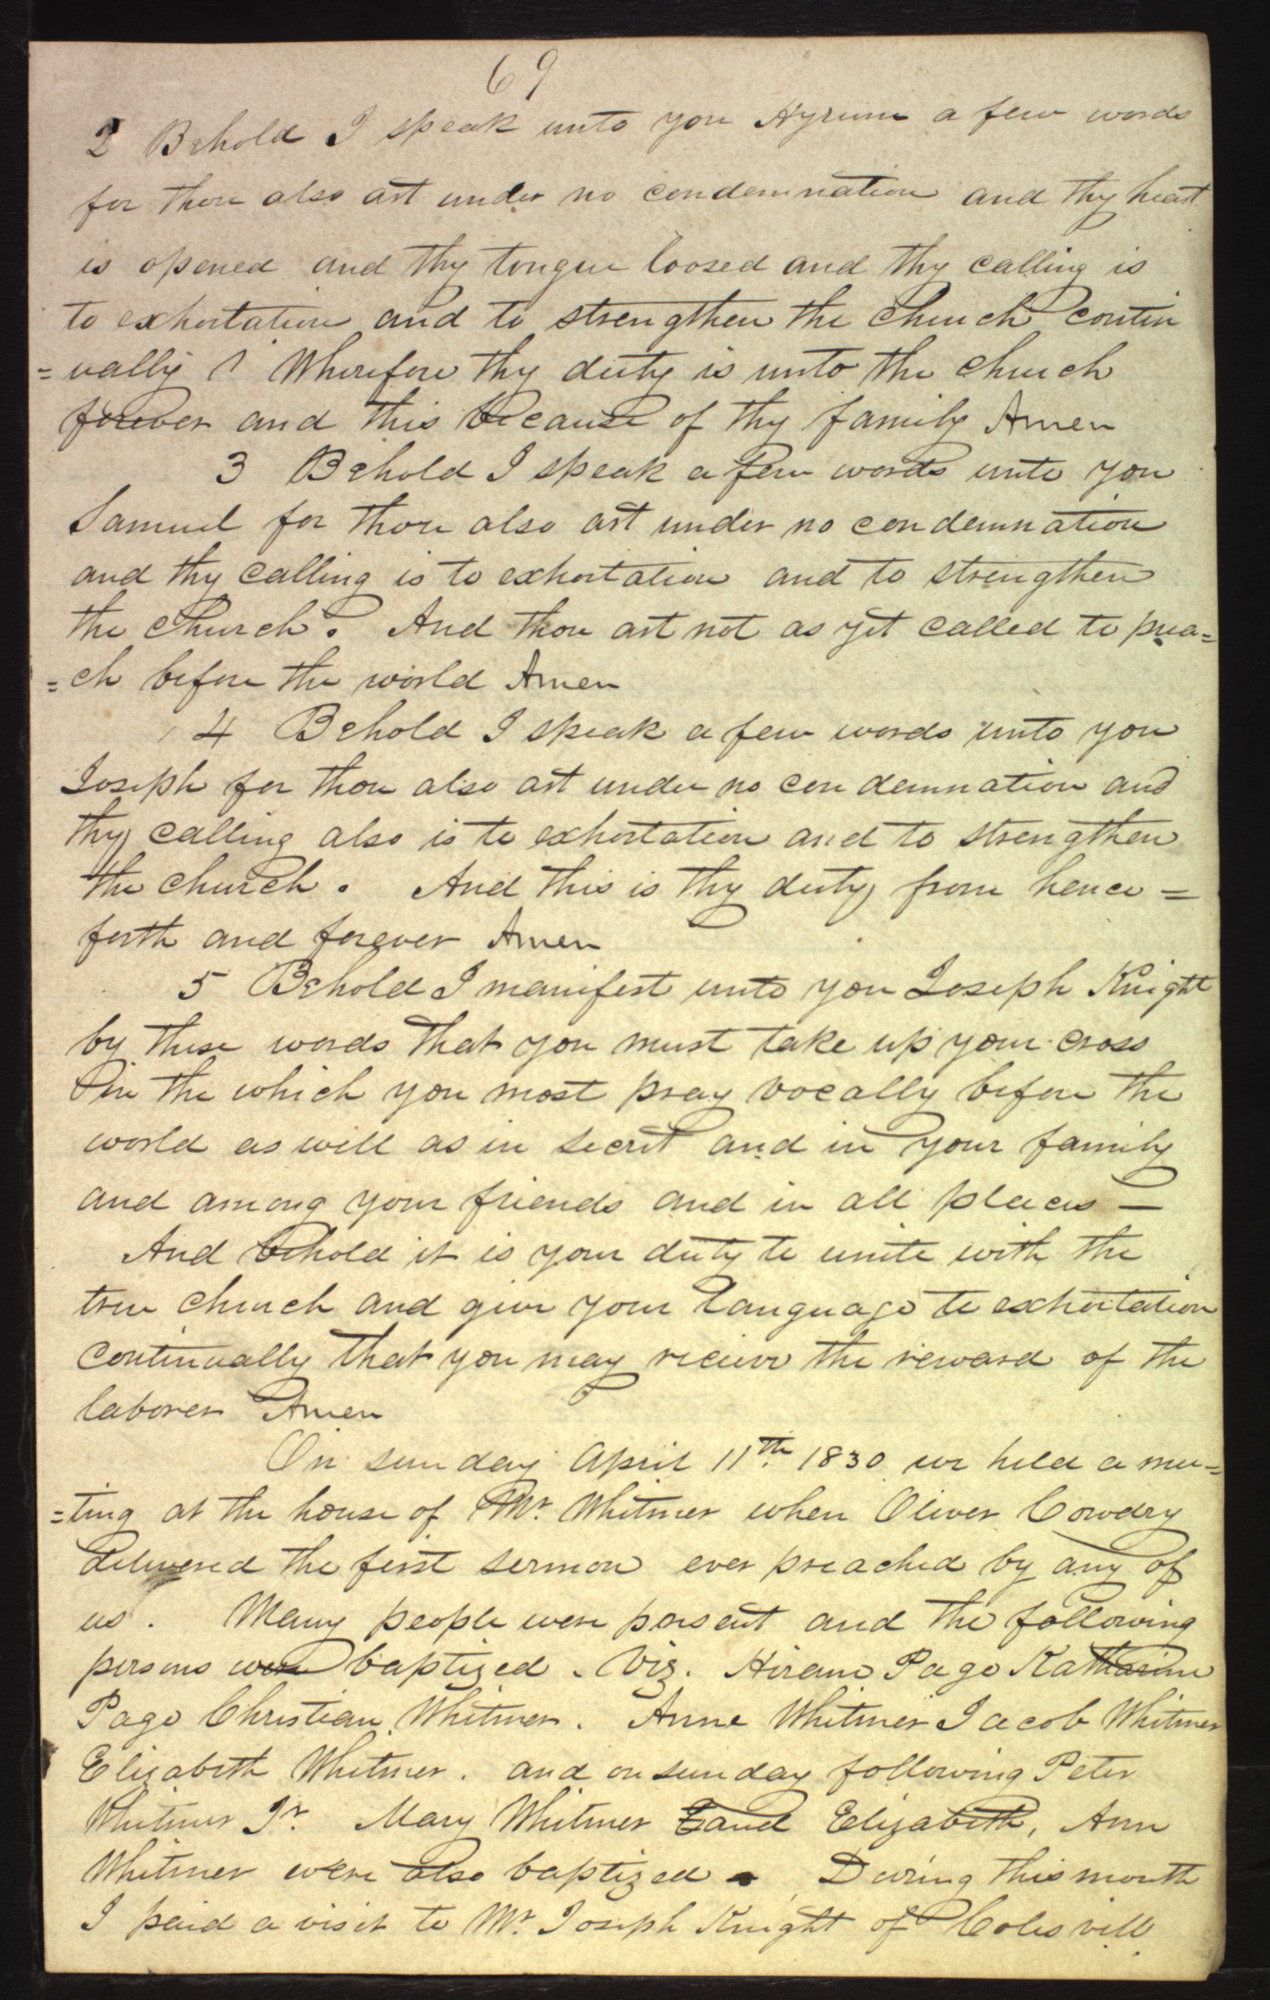 69
2 Behold I speak unto you Hyrum a few words
for thou also art under no condemnation and thy heart
is opened and thy tongue loosed and thy calling is
to exhortation and to strengthen the church contin
=ually Wherefore thy duty is unto the church
forever and this because of thy family Amen
3 Behold I speak a few words unto you
Samuel for thou also art under no condemnation
and thy calling is to exhortation and to strengthen
the church. And thou art not as yet called to prea=
=ch before the world Amen
4 Behold I speak a few words unto you
Joseph for thou also art under no condemnation and
thy calling also is to exhortation and to strengthen
the church. And this is thy duty from hence=
forth and forever Amen
5 Behold I manifest unto you Joseph Knight
by these words that you must take up your cross
in the which you most pray vocally before the
world as well as in secret and in your family
and among your friends and in all places —
And behold it is your duty to unite with the
true church and give your language to exhortation
continually that you may recieve the reward of the
laborer Amen
On sunday April 11th. 1830 we held a mee=
=ting at the house of Mr. Whitmer when Oliver Cowdry
delivered the first sermon ever preached by any of
us. Many people were present and the following
persons were baptized. Viz. Hiram Page Katharine
Page Christian Whitmer. Anne Whitmer Jacob Whitmer
Elizabeth Whitmer. and on sunday following Peter
Whitmer Jr. Mary Whitmer and Elizabeth, Ann
Whitmer were also baptized. During this month
I paid a visit to Mr. Joseph Knight of Colesvill